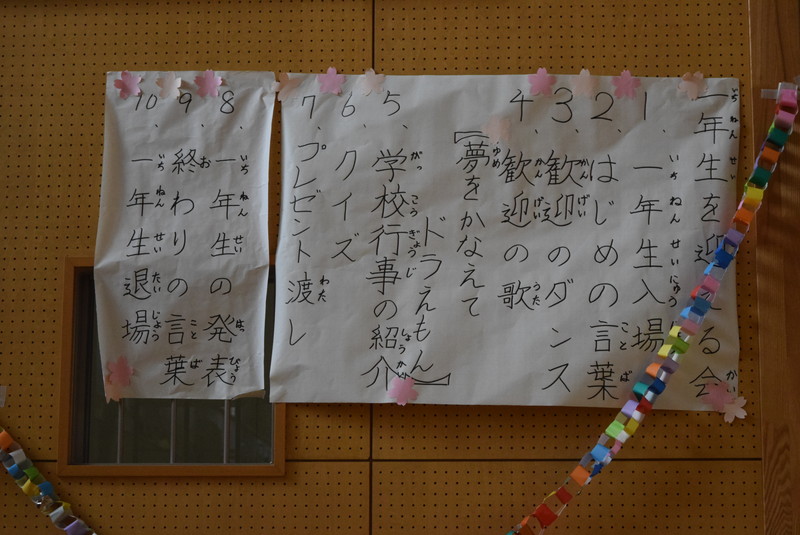 一年生を迎える会
1、一年生入場
2、はじめの言葉
3、歓迎のダンス
4、歓迎の歌
【夢をかなえて
ドラえもん】
5、学校行事の紹介
6、クイズ
7、プレゼント渡し
8、一年生の発表
9、終わりの言葉
10、一年生退場